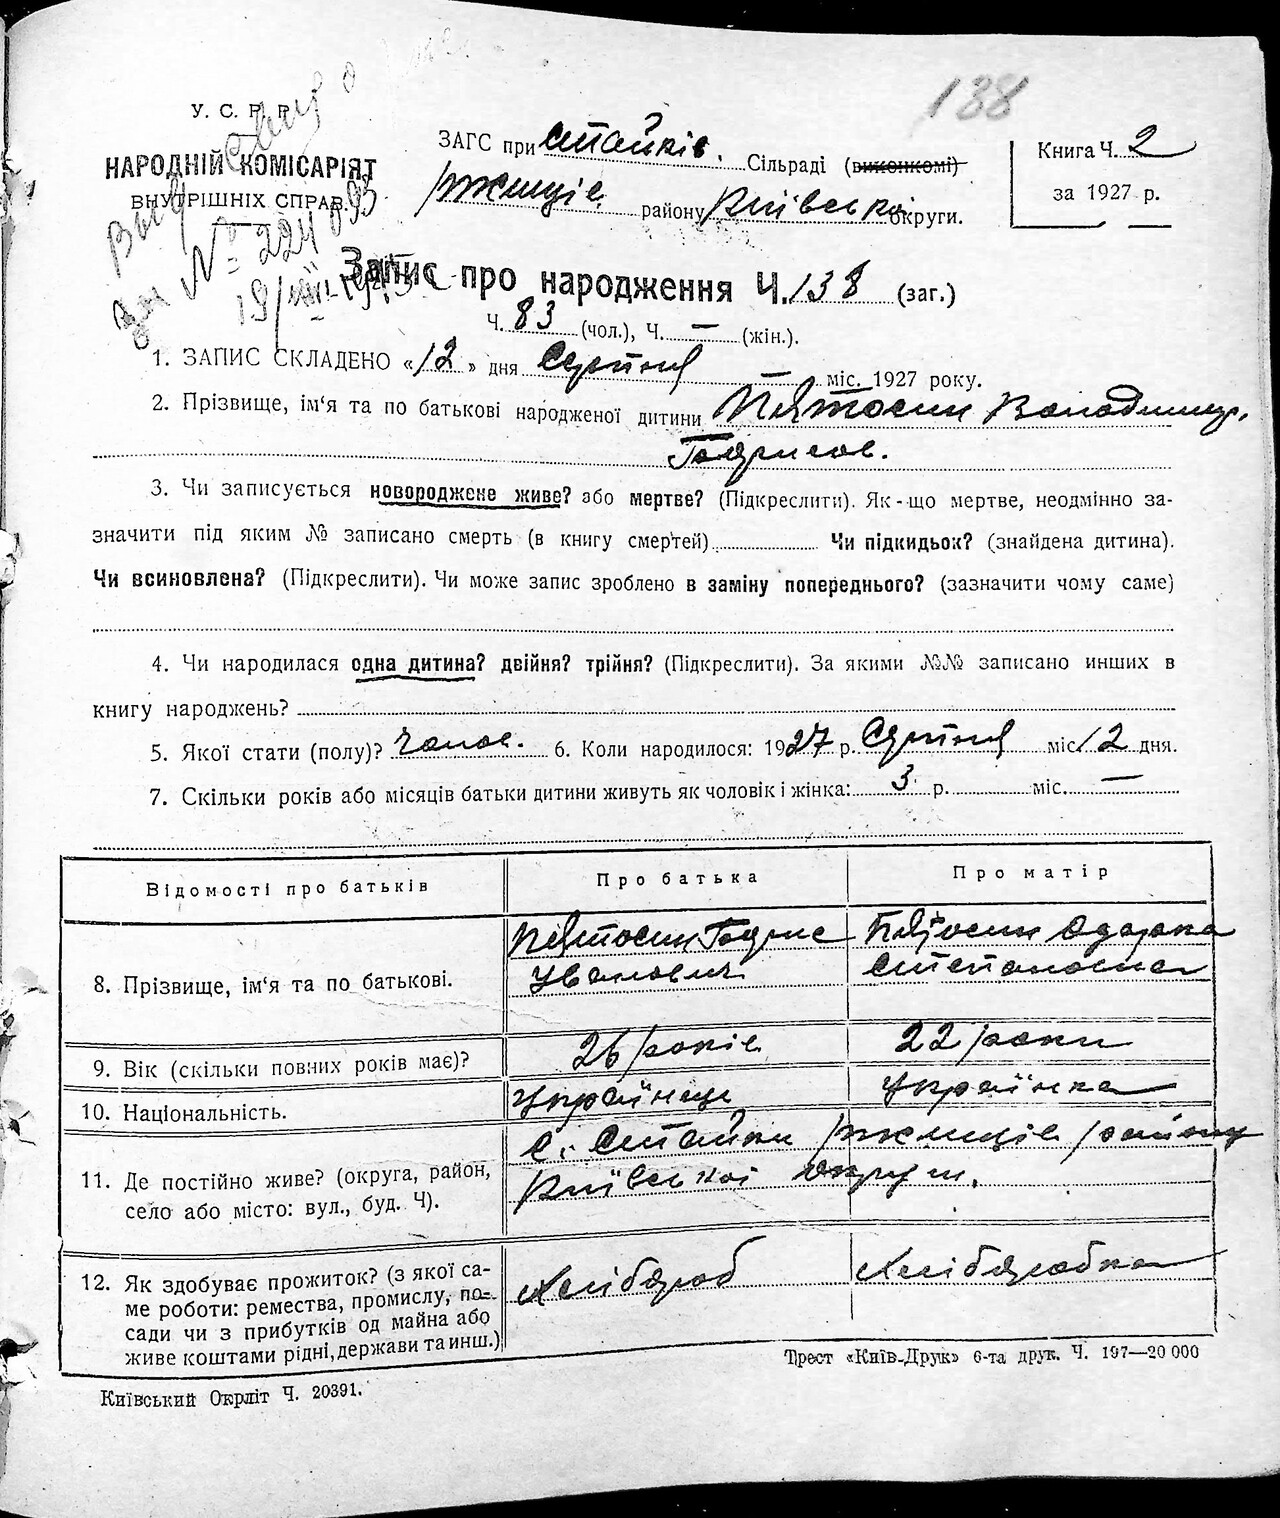 138
У. С. Р. Р.
НАРОДНІЙ КОМІСАРІЯТ
ВНУТРІШНІХ СПРАВ.
№ 224893
19/VIII
ЗАГС при Стайків. Сільраді (виконкомі)
Ржищів. району Київської округи.
Книга Ч. 2
за 1927 р.
Запис про народження Ч. 138 (заг.)
Ч. 83 (чол.), Ч. — (жін.).
1. ЗАПИС СКЛАДЕНО «12» дня Серпня — міс. 1927 року.
2. Прізвище, ім‘я та по батькові народженої дитини Пятосин Володимир.
Борисов.
3. Чи записується новороджене живе? або мертве? (Підкреслити). Як-що мертве, неодмінно за-
значити під яким № записано смерть (в книгу смертей) Чи підкидьок? (знайдена дитина).
Чи всиновлена? (Підкреслити). Чи може запис зроблено в заміну попереднього? (зазначити чому саме)
4. Чи народилася одна дитина? двійня? трійня? (Підкреслити). За якими №№ записано инших в
книгу народжень?
5. Якої стати (полу)? чолов. 6. Коли народилося: 1927 р. Серпня міс. 12 дня.
7. Скільки років або місяців батьки дитини живуть як чоловік і жінка: 3 р. міс. —
Відомості про батьків
Про батька
Про матір
8. Прізвище, ім‘я та по батькові.
Пятосин Борис
Иванович
Пятосин Одарка
Степановна
9. Вік (скільки повних років має)?
26 років
22 роки
10. Національність.
Українець
Українка
11. Де постійно живе? (округа, район,
село або місто: вул., буд. Ч).
с. Стайки Ржищів. району
Київської округи.
12. Як здобуває прожиток? (з якої са-
ме роботи: ремества, промислу, по-
сади чи з прибутків од майна або
живе коштами рідні, держави та инш.)
Хлібороб
Хліборобка
Київський Окрліт Ч. 20391.
Трест «Київ-Друк» 6-та друк. Ч. 197—20 000